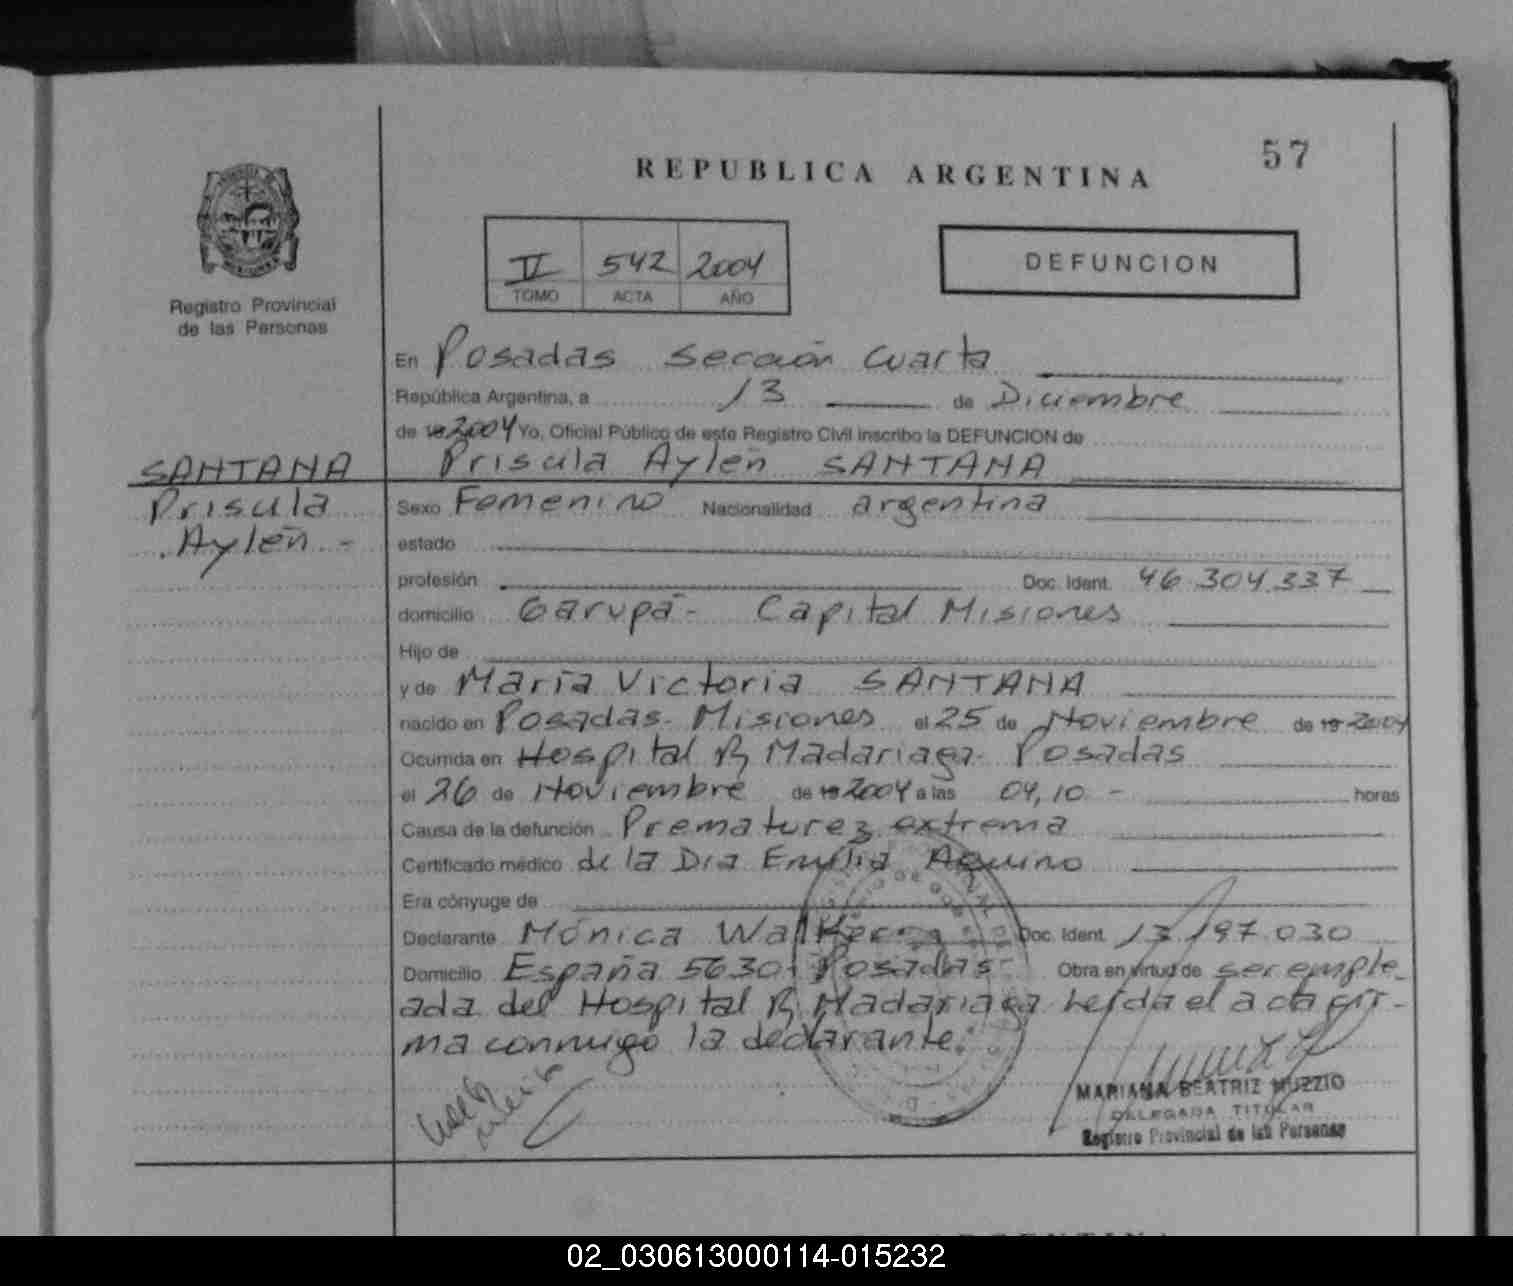 57
REPUBLICA ARGENTINA
II 542 2004
TOMO ACTA AÑO
DEFUNCION
Registro Provincial
de las Personas
En Posadas Sección Cuarta
República Argentina, a 13 de Diciembre
de 19 2004 Yo, Oficial Público de este Registro Civil inscribo la DEFUNCION de
Priscila Aylén SANTANA
SANTANA
Priscila
Aylén -
Sexo Femenino Nacionalidad argentina
estado
profesión Doc. Ident. 46.304.337
domicilio Garupá - Capital Misiones
Hijo de
y de María Victoria SANTANA
nacido en Posadas - Misiones el 25 de Noviembre de 19 2004
Ocurrida en Hospital R. Madariaga - Posadas
el 26 de Noviembre de 19 2004 a las 04,10 - horas
Causa de la defunción Prematurez extrema
Certificado médico de la Dra Emilia Aquino
Era cónyuge de
Declarante Mónica Walker Doc. Ident. 13.197.030
Domicilio España 5630 - Posadas - Obra en virtud de ser emple-
ada del Hospital R. Madariaga Leída el acta fir-
ma conmigo la declarante.
MARIANA BEATRIZ MUZZIO
DELEGADA TITULAR
Registro Provincial de las Personas
02_030613000114-015232